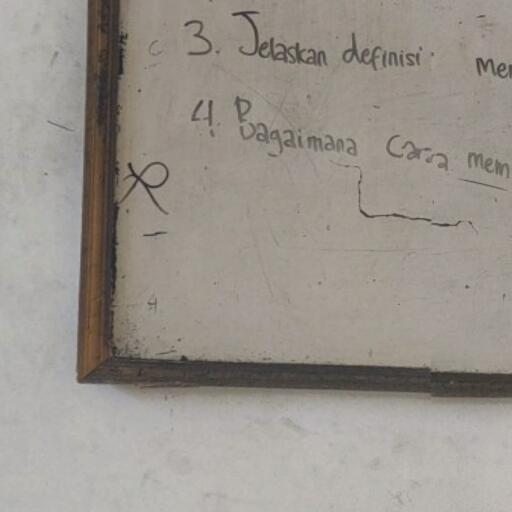 3. Jelaskan definisi
4. Bagaimana Cara mem